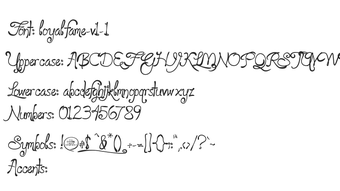 Font: loyalfame-v1-1
Uppercase: ABCDEFGHIJKLMNOPQRSTUVW
Lowercase: abcdefghijklmnopqrstuvwxyz
Numbers: 0123456789
Symbols:
Accents: